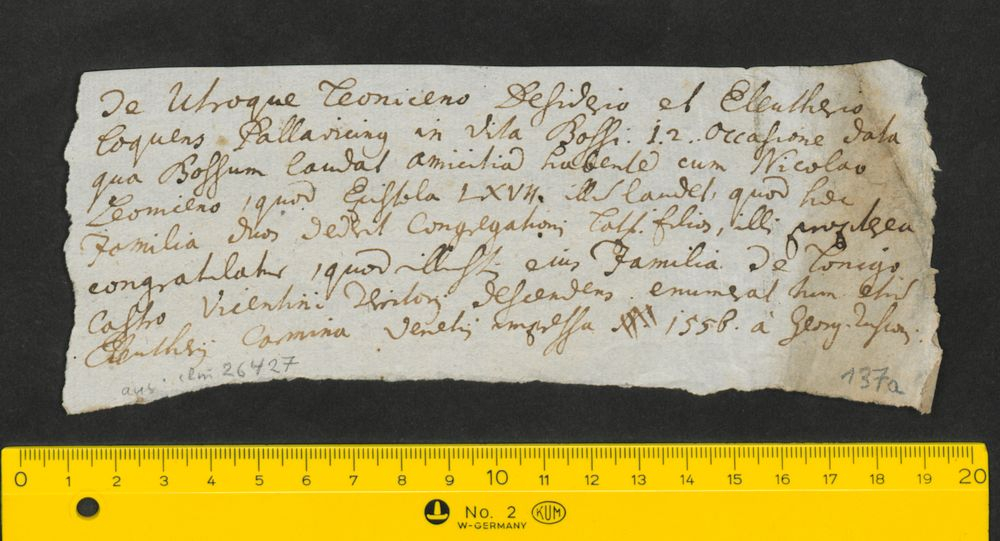 De Utroque Leoniceno Desiderio et Eleutherio
Loquens Pallavicing in vita Bossi. 12. occasione data
qua Bossum laudat amicitiã habentẽ cum Nicolao
Leoniceno, quod Epistola LXVII. laudet, quod hæc
Familia duos dederit Congregationi filios, illi propterea
congratulatur, quod eius Familia De Lonigo
Castro Vicentini Territorij descendens. enumerat
Eleutherij Carmina Venetijs impressa 1556. à Georg.
aus. clm 26427
137a
0 1 2 3 4 5 6 7 8 9 10 11 12 13 14 15 16 17 18 19 20
No. 2 KUM
W-GERMANY